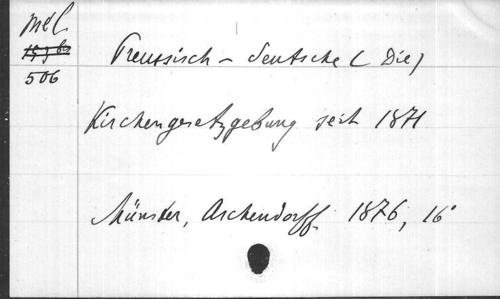 Mél
506
Preussisch - deutsche (Die)
Kirchengesetzgebung seit 1871
Münster, Aschendorff 1876, 16°